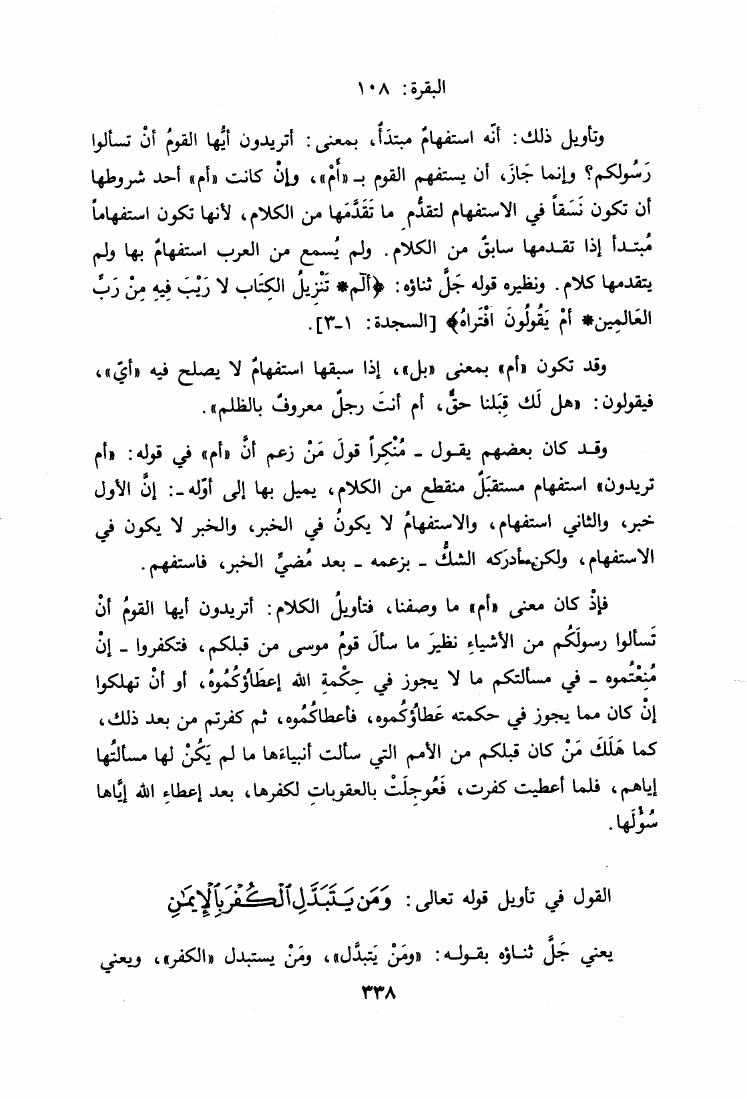 البقرة: ١٠٨
وتأويل ذلك: أنّه استفهامٌ مبتدَأٌ، بمعنى: أتريدون أيُّها القومُ أنْ تسألوا
رَسُولكم؟ وإنما جَازَ، أن يستفهم القوم بـ «أَمْ»، وإنْ كانت «أم» أحد شروطها
أن تكون نَسَقاً في الاستفهام لتقدُّم ما تَقَدَّمَها من الكلام، لأنها تكون استفهاماً
مُبتـدأ إذا تقـدمها سابقٌ من الكلام. ولم يُسمع من العرب استفهامٌ بها ولم
يتقدمها كلام. ونظيره قوله جَلَّ ثناؤه: ﴿ألم* تَنْزِيلُ الكِتَاب لا رَيْبَ فِيهِ مِنْ رَبِّ
العَالمِين* أمْ يَقُولُونَ افْتَراهُ﴾ [السجدة: ١-٣].
وقد تكون «أم» بمعنى «بل»، إذا سبقها استفهامٌ لا يصلح فيه «أيّ»،
فيقولون: «هل لَك قِبَلنا حقٌّ، أم أنتَ رجلٌ معروفٌ بالظلم».
وقـد كان بعضهم يقـول - مُنْكِراً قولَ مَنْ زعم أنَّ «أم» في قوله: «أم
تريدون» استفهام مستقبَلٌ منقطع من الكلام، يميل بها إلى أوّله -: إنَّ الأول
خبر، والثاني استفهام، والاستفهامُ لا يكونُ في الخبر، والخبر لا يكون في
الاستفهام، ولكن أدركه الشكُّ - بزعمه - بعد مُضيِّ الخبر، فاستفهم.
فإذْ كان معنى «أم» ما وصفنا، فتأويلُ الكلام: أتريدون أيها القومُ أنْ
تَسألوا رسولَكُم من الأشياءِ نظيرَ ما سألَ قومُ موسى من قبلكم، فتكفروا - إنْ
مُنِعْتُموه - في مسألتكم ما لا يجوز في حِكْمةِ الله إعطَاؤُكُمُوهُ، أو أنْ تهلكوا
إنْ كان مما يجوز في حكمته عَطاؤُكموه، فأعطاكُموه، ثم كفرتم من بعد ذلك،
كما هَلَكَ مَنْ كان قبلكم من الأمم التي سألت أنبياءَها ما لم يَكُنْ لها مسألتُها
إياهم، فلما أعطيت كفرت، فَعُوجِلَتْ بالعقوباتِ لكفرها، بعد إعطاءِ الله إيَّاها
سُؤْلَها.
القول في تأويل قوله تعالى: وَمَن يَتَبَدَّلِ ٱلْكُفْرَ بِٱلْإِيمَٰنِ
يعني جَلَّ ثنـاؤه بقـولـه: «ومَنْ يَتبدَّل»، ومَنْ يستبدل «الكفر»، ويعني
٣٣٨